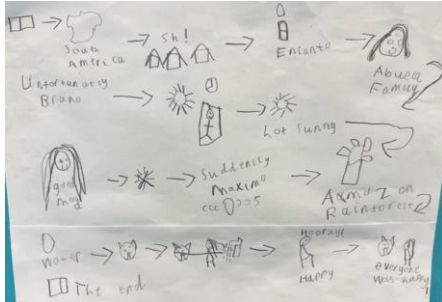 South America
Sh!
Encanto
Abuea Family
Unfortunatly Bruno
hot sunny
good
Suddenily Maximo
Rainforest
Hooray!
Happy
everyone was happy
The end